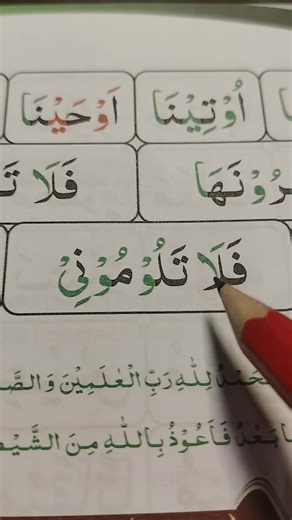 اُوْتِيْنَا اَوْحَيْنَا
فَلَا
فَلَا تَلُوْمُوْنِيْ
لِلّٰهِ رَبِّ الْعٰلَمِيْنَ وَالصَّ
بَعْدُ فَاَعُوْذُ بِاللّٰهِ مِنَ الشَّيْطٰ